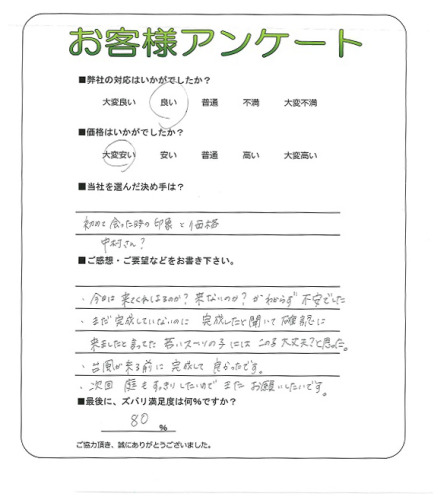 お客様アンケート
■弊社の対応はいかがでしたか？
大変良い 良い 普通 不満 大変不満
■価格はいかがでしたか？
大変安い 安い 普通 高い 大変高い
■当社を選んだ決め手は？
初めて会った時の印象と価格
中村さん？
■ご感想・ご要望などをお書き下さい。
・今日は来てくれるのか？来ないのか？かわからず不安でした
・まだ完成していないのに 完成したと聞いて確認に
来ましたと言ってた 若いスーツの子には この子大丈夫？と思った。
・台風が来る前に完成して良かったです。
・次回 庭もすっきりしたいので またお願いしたいです。
■最後に、ズバリ満足度は何％ですか？
80 %
ご協力頂き、誠にありがとうございました。